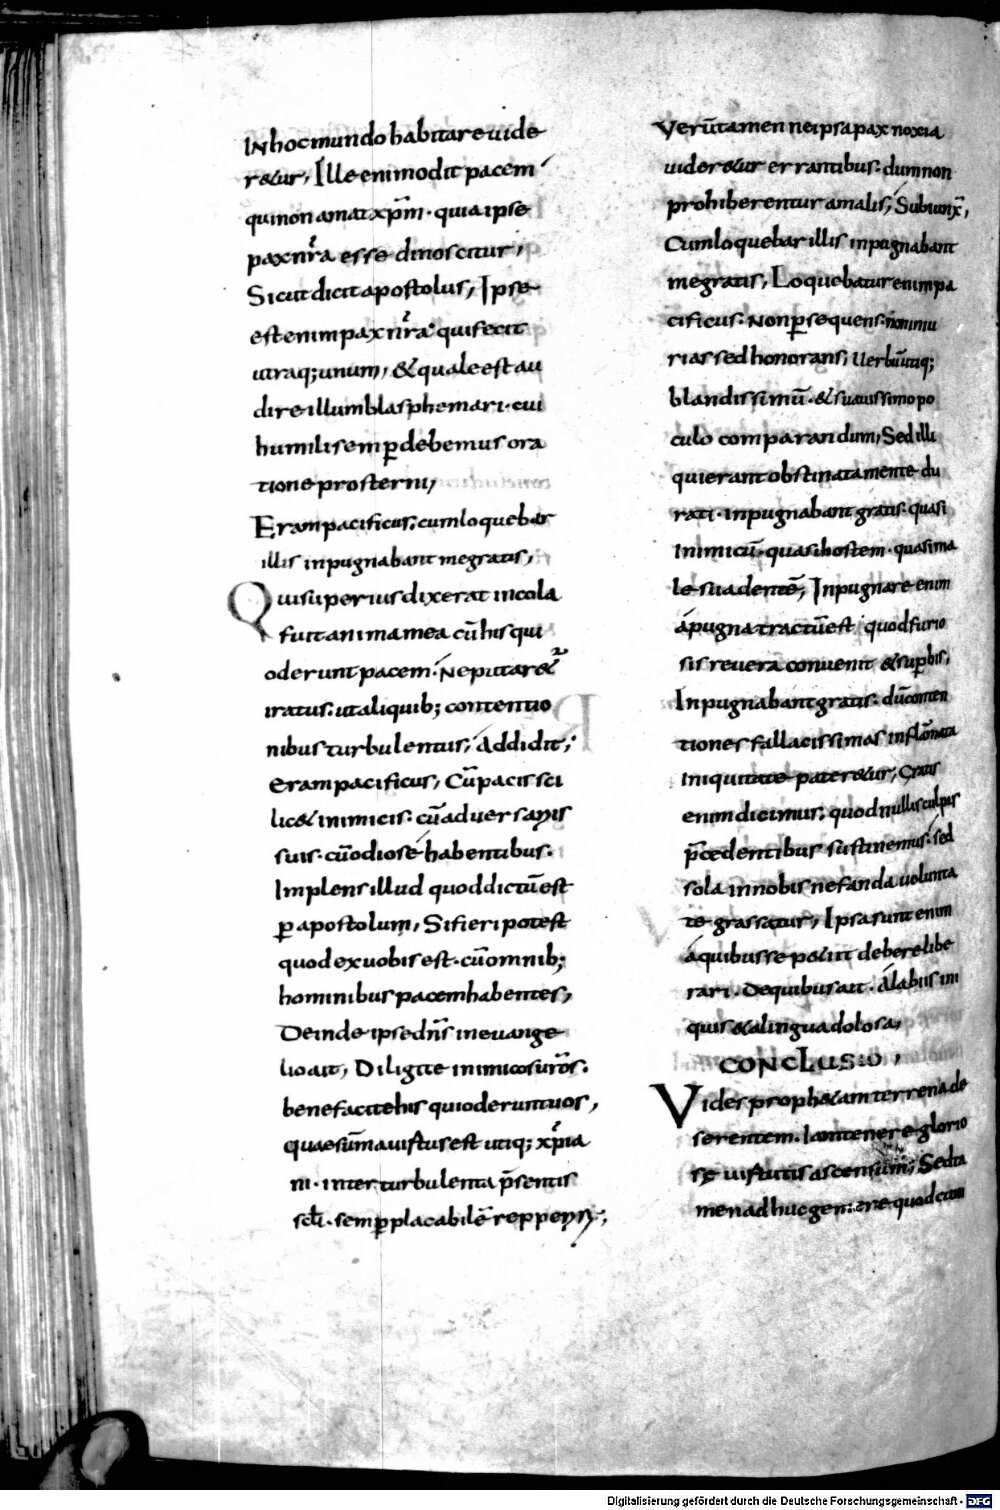 In hoc mundo habitare uide
r&ur, Ille enim odit pacem
qui non amat xp̄m · quia ipse
pax nr̄a esse dinoscitur,
Sicut dicit apostolus, Ipse
est enim pax nr̄a qui fecit
utraq; unum, & quale est au
dire illum blasphemari · cui
humili semꝑ debemus ora
tione prosterni,
Eram pacificus, cum loquebar
illis inpugnabant me gratis,
Qui superius dixerat incola
fuit anima mea cū his qui
oderunt pacem. Ne putar&ur
iratus. ut aliquib; contentio
nibus turbulentus, addidit;
eram pacificus, Cū pacis sci
lic& inimicis. cū aduersariis
suis · cū odiose habentibus.
Implens illud quod dictū est
ꝑ apostolum, Si fieri potest
quod ex uobis est · cū omnib;
hominibus pacem habentes,
Deinde ipse dn̄s in euange
lio ait, Diligite inimicos ur̄os.
benefacite his qui oderunt uos,
quae sūma uirtus est utiq; xp̄ia
ni · inter turbulenta p̄sentis
scl̄i · semꝑ placabilē repperiri,
Verūtamen ne ipsa pax noxia
uider&ur errantibus. dum non
prohiberentur a malis, Subiunx̄,
Cum loquebar illis inpugnabant
me gratis, Loquebatur enim pa
cificus. Non ꝑsequens. non iniu
rias sed honorans, Uerbū utiq;
blandissimū · & suauissimo po
culo comparandum, Sed illi
qui erant obstinata mente du
rati · inpugnabant gratis. quasi
inimicū · quasi hostem · quasi ma
le suadentē, Inpugnare enim
a pugna tractū est quod furio
sis reuera conuenit & suꝑbis,
Inpugnabant gratis. dū conten
tiones fallacissimas inflāmata
iniquitate pater&ur, Gratis
enim dicimus, quod nullis culpis
p̄cedentibus sustinemus. sed
sola in nobis nefanda uolunta
te grassatur, Ipsa sunt enim
a quibus se p&iit debere libe
rari · De quibus ait · A labiis ini
quis & a lingua dolosa,
CONCLUSIO,
Vides proph&am terrena de
serentem. Iam tenere glorio
se uirtutis ascensum, Sed ta
men adhuc gemere quod cum